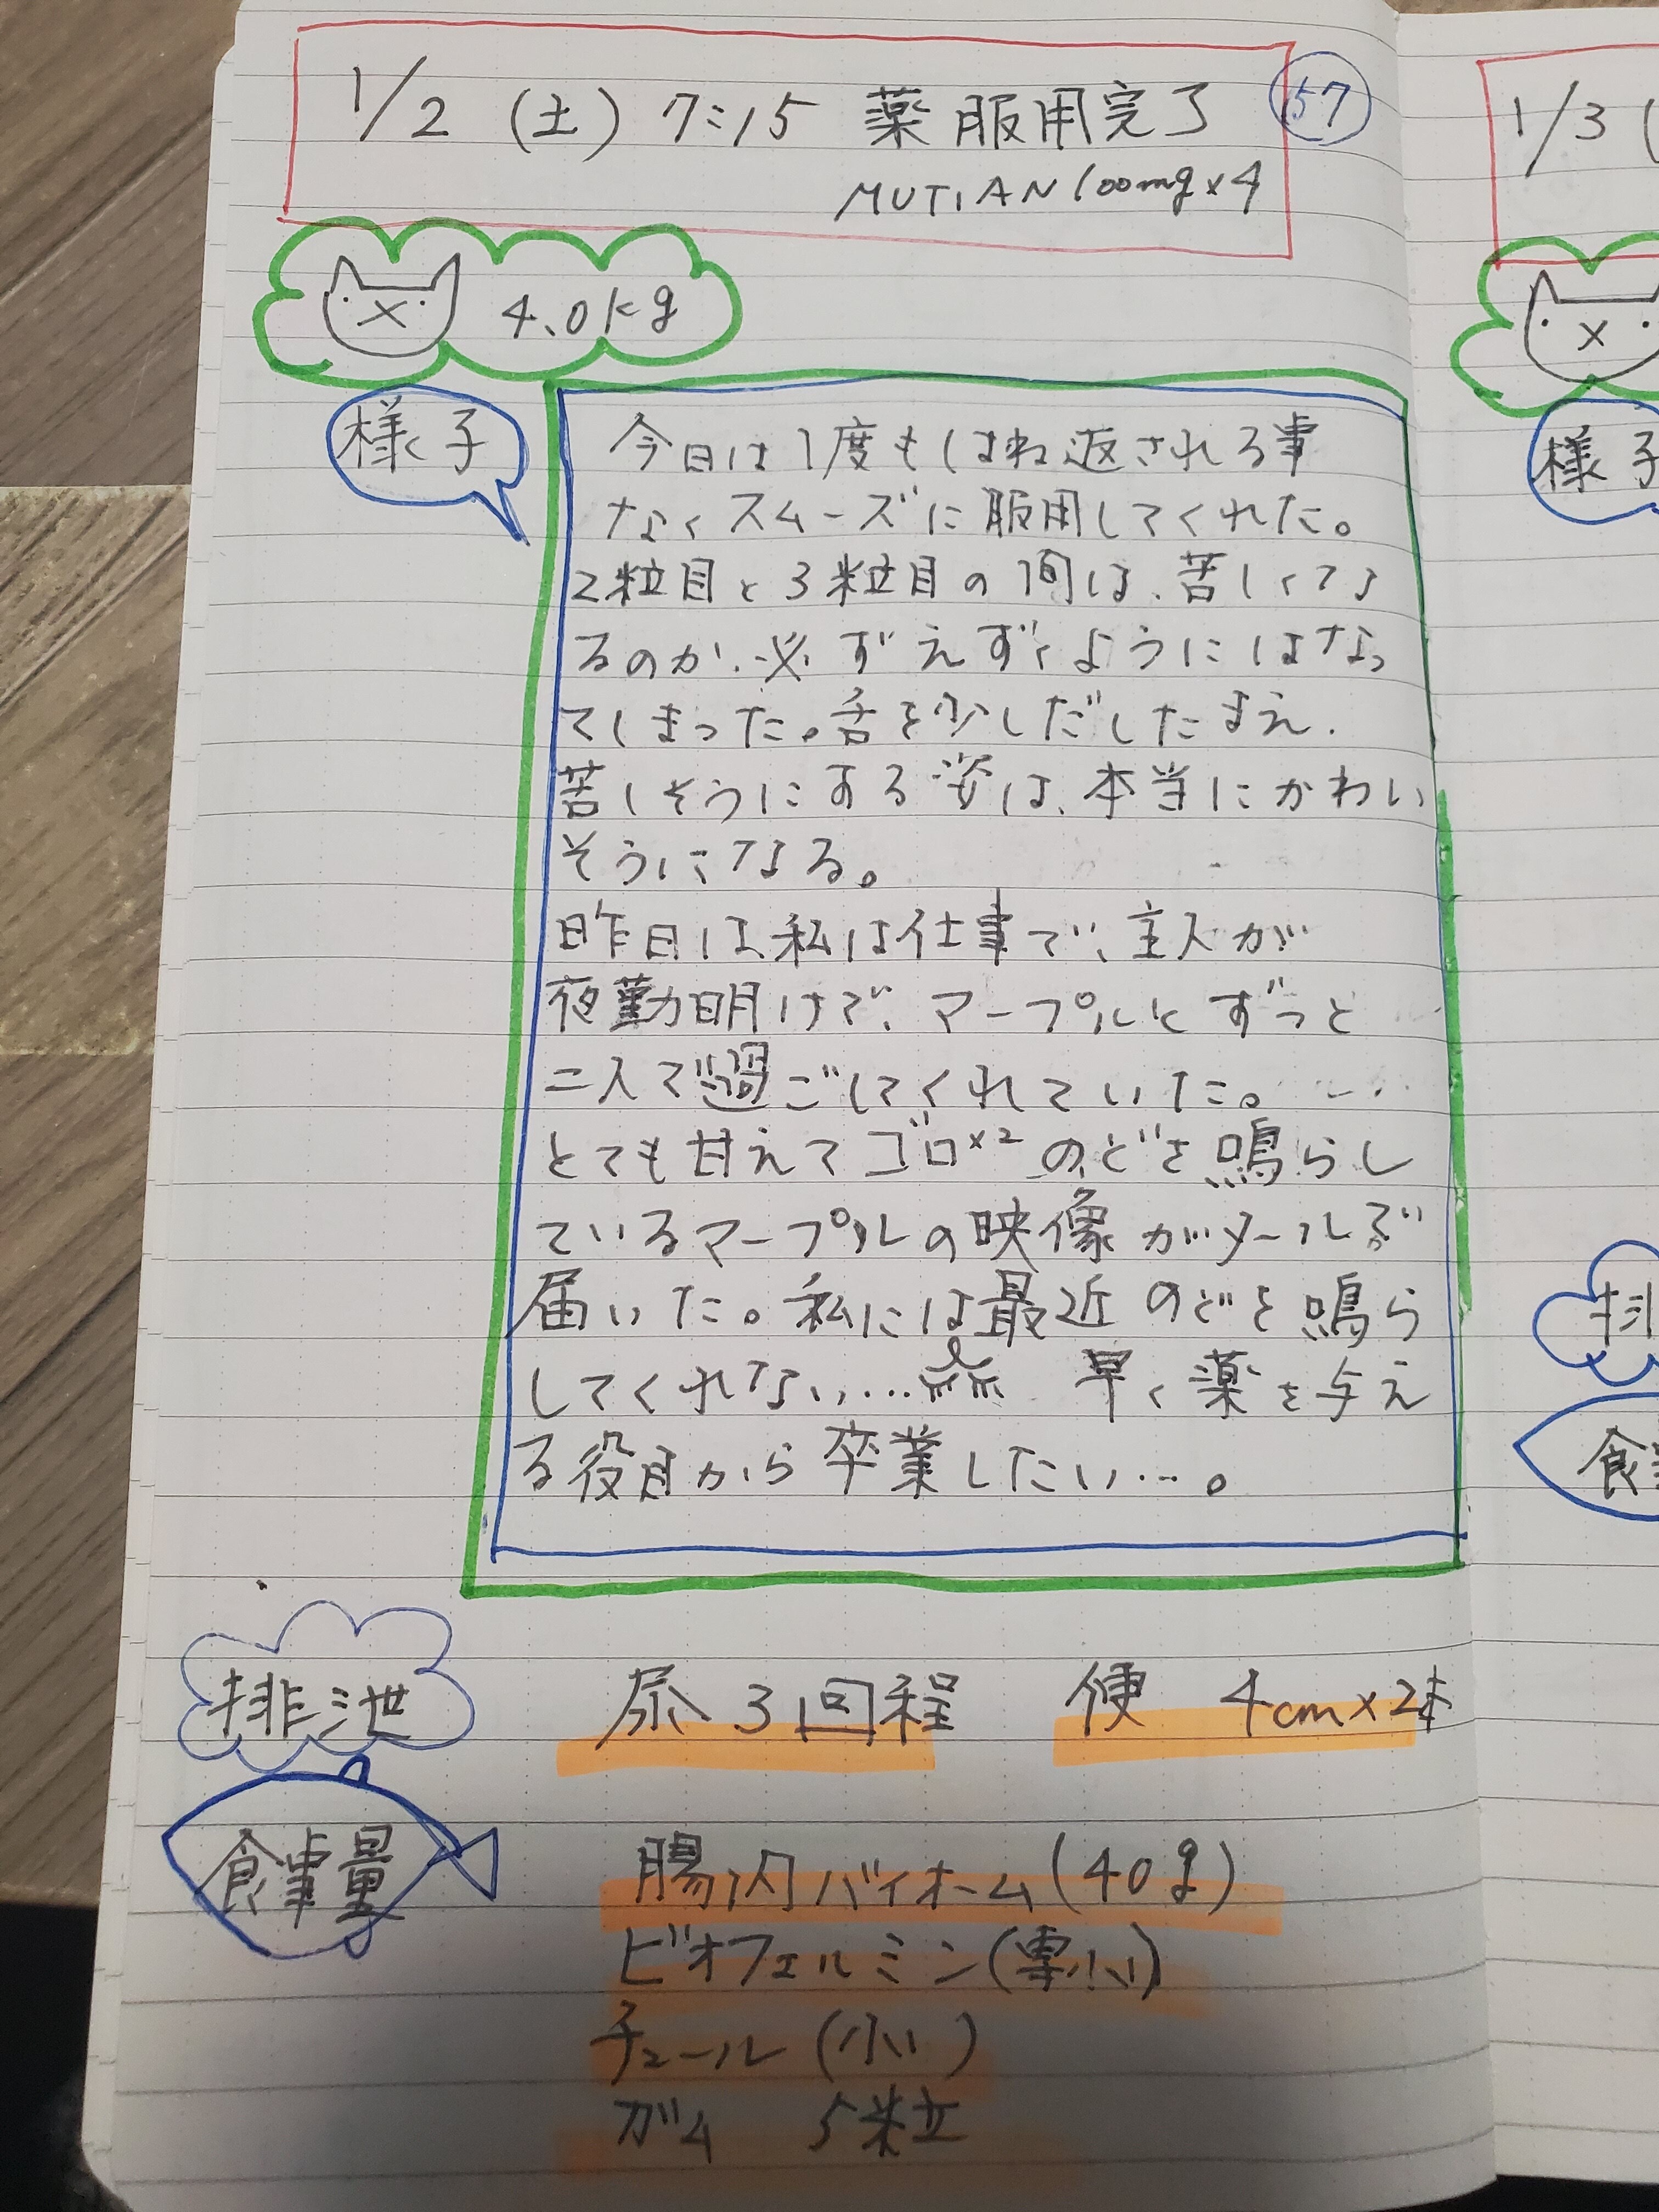 1/2 (土) 7:15 薬服用完了 57
MUTIAN 100mg×4
4.0kg
様子
今日は1度もはね返される事
なくスムーズに服用してくれた。
2粒目と3粒目の間は、苦しくな
るのか、必ずえずくようにはなっ
てしまった。舌を少しだしたまえ、
苦しそうにする姿は、本当にかわい
そうになる。
昨日は、私は仕事で、主人が
夜勤明けで、マープルとずっと
二人で過ごしてくれていた。
とても甘えてゴロ×2のどを鳴らし
ているマープルの映像がメールで
届いた。私には最近のどを鳴ら
してくれない… 早く薬を与え
る役目から卒業したい…。
排泄 尿3回程 便 4cm×2本
食事量 腸内バイオーム(40g)
ビオフェルミン(小)
チュール(小)
ガム 5粒
1/3 (
様子
排
食事